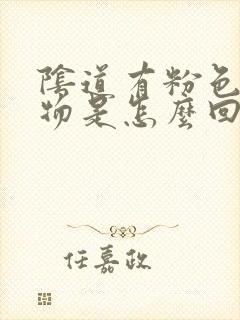 陰道有粉色
物是怎麼回
任嘉政